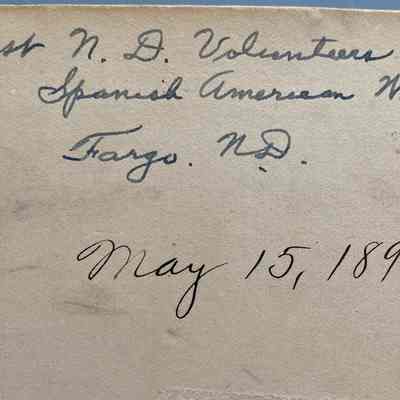 st N. D. Volunteers
Spanish American W
Fargo. N.D.
May 15, 189